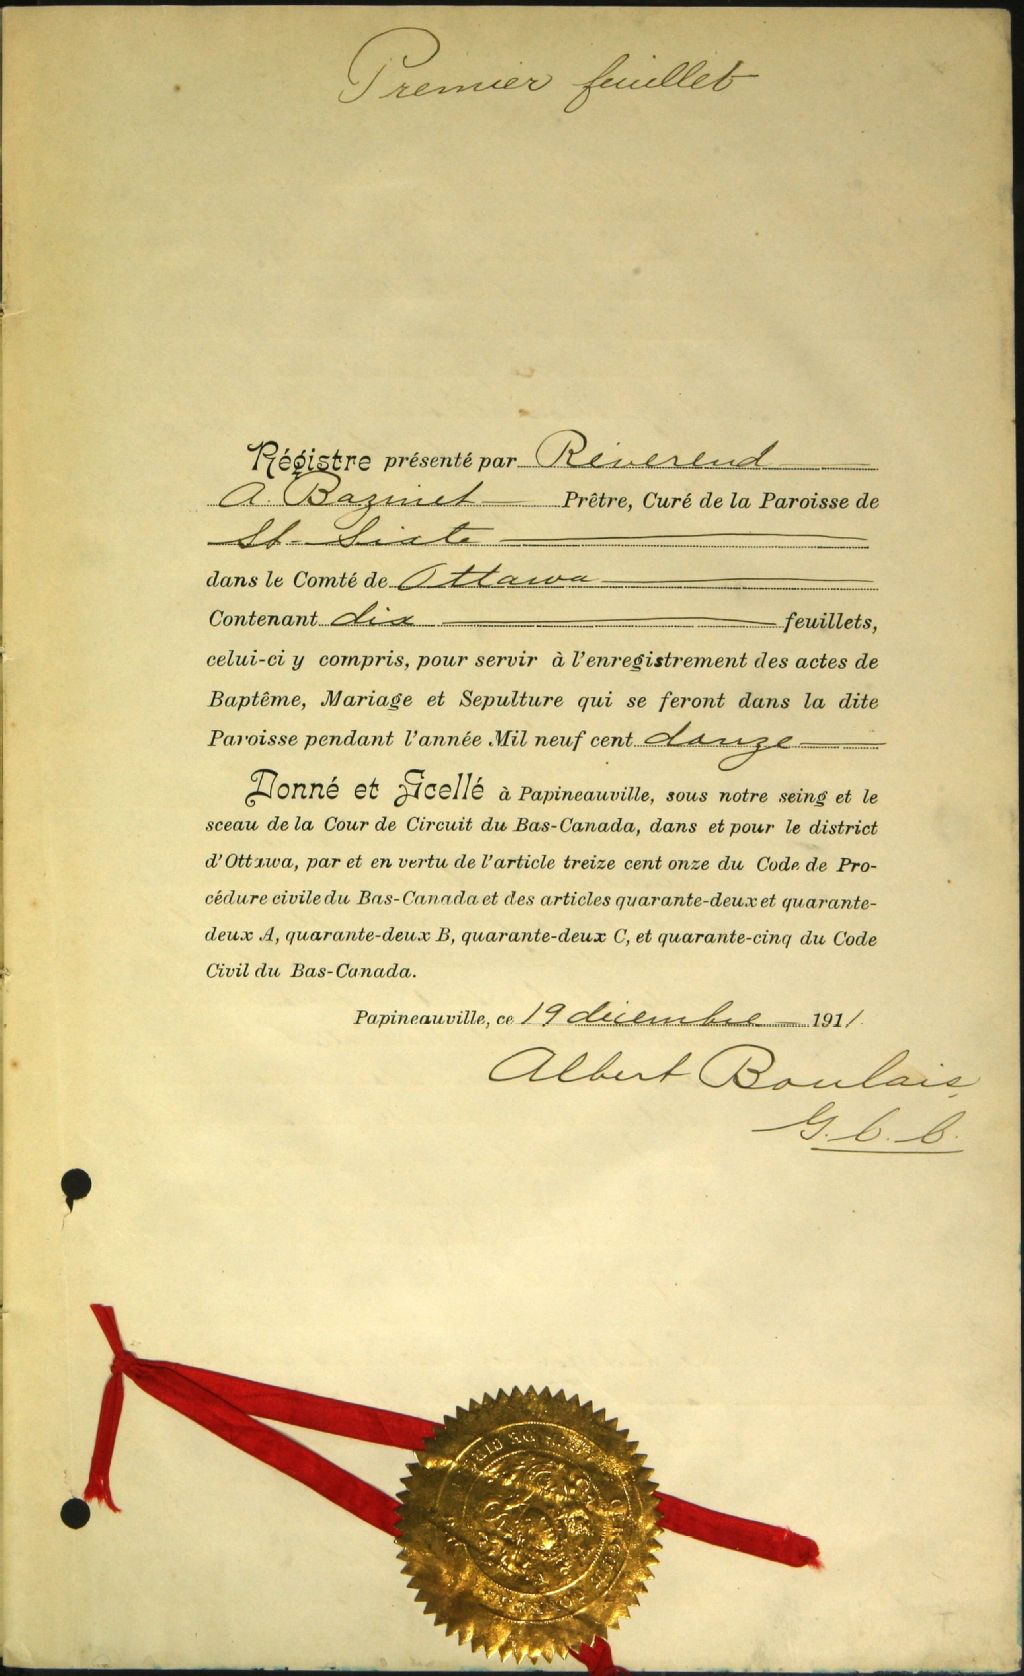 Premier feuillet
Régistre présenté par Réverend
A. Bazinet Prêtre, Curé de la Paroisse de
St. Sixte
dans le Comté de Ottawa
Contenant dix feuillets,
celui-ci y compris, pour servir à l'enregistrement des actes de
Baptême, Mariage et Sepulture qui se feront dans la dite
Paroisse pendant l'année Mil neuf cent douze
Donné et Scellé à Papineauville, sous notre seing et le
sceau de la Cour de Circuit du Bas-Canada, dans et pour le district
d'Ottawa, par et en vertu de l'article treize cent onze du Code de Pro-
cédure civile du Bas-Canada et des articles quarante-deux et quarante-
deux A, quarante-deux B, quarante-deux C, et quarante-cinq du Code
Civil du Bas-Canada.
Papineauville, ce 19 décembre 1911
Albert Boulais,
G. C. C.